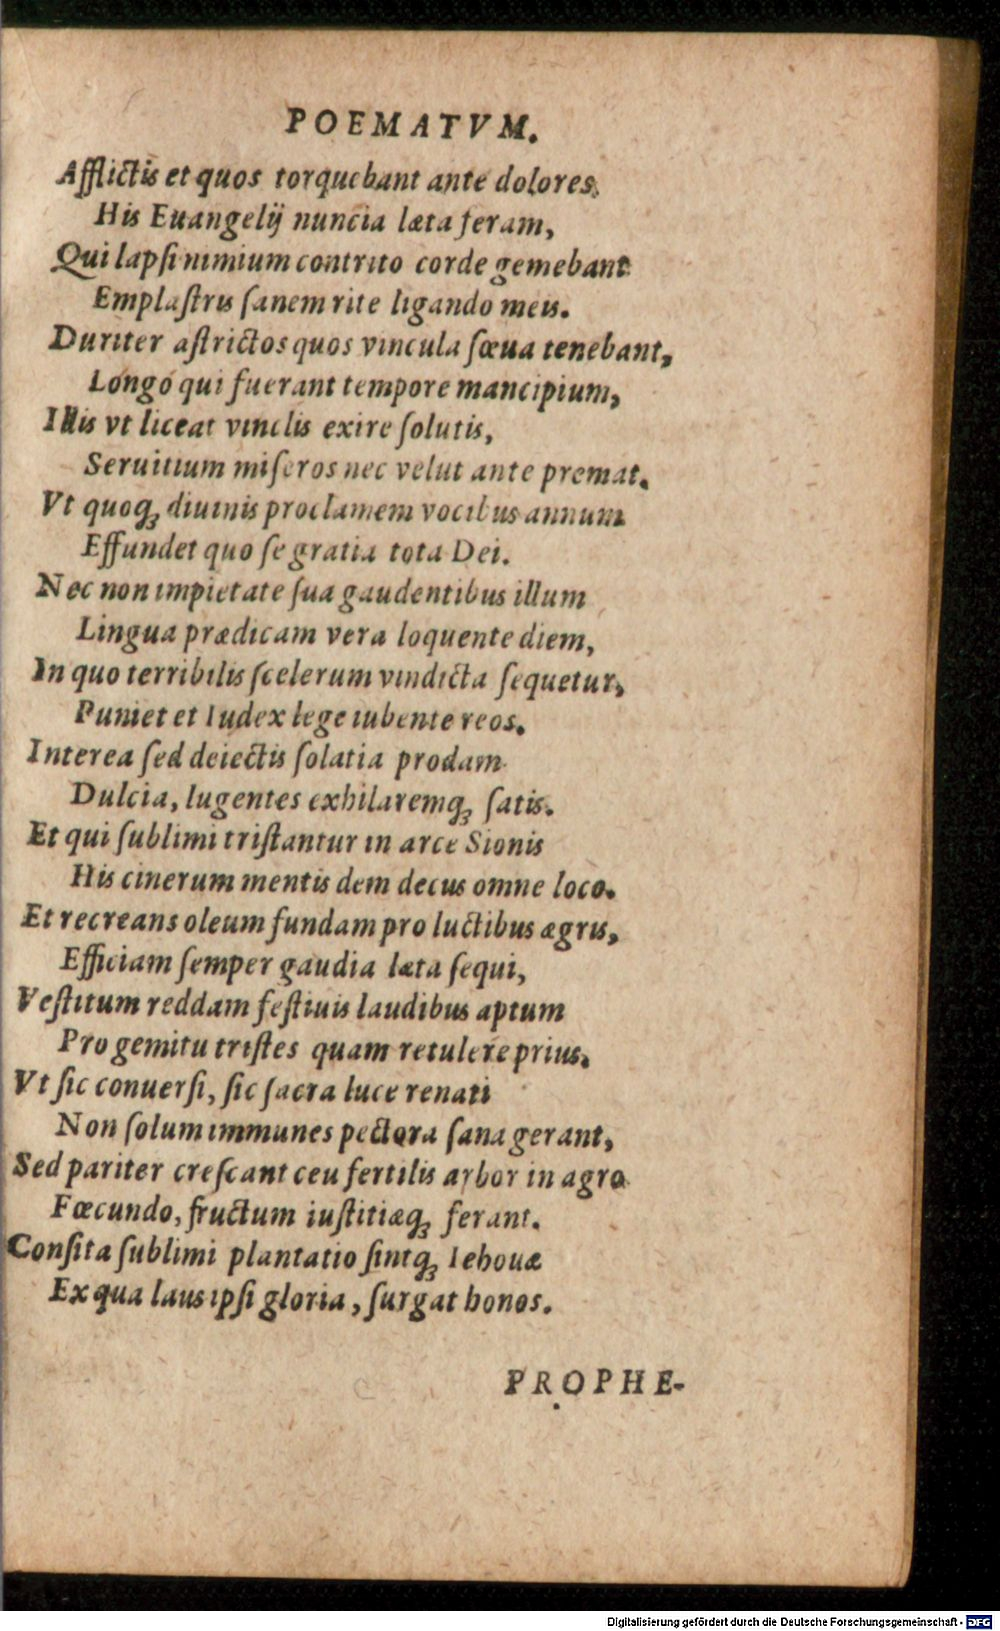 POEMATVM.
Afflictis et quos torquebant ante dolores,
His Euangelij nuncia læta feram,
Qui lapſi nimium contrito corde gemebant
Emplaſtris ſanem rite ligando meis.
Duriter aſtrictos quos vincula ſœua tenebant,
Longo qui fuerant tempore mancipium,
Illis vt liceat vinclis exire ſolutis,
Seruitium miſeros nec velut ante premat.
Vt quoqꝫ diuinis proclamem vocibus annum
Effundet quo ſe gratia tota Dei.
Nec non impietate ſua gaudentibus illum
Lingua prædicam vera loquente diem,
In quo terribilis ſcelerum vindicta ſequetur,
Puniet et Iudex lege iubente reos.
Interea ſed deiectis ſolatia prodam
Dulcia, lugentes exhilaremqꝫ ſatis.
Et qui ſublimi triſtantur in arce Sionis
His cinerum mentis dem decus omne loco.
Et recreans oleum fundam pro luctibus ægris,
Efficiam ſemper gaudia læta ſequi,
Veſtitum reddam feſtiuis laudibus aptum
Pro gemitu triſtes quam retulere prius.
Vt ſic conuerſi, ſic ſacra luce renati
Non ſolum immunes pectora ſana gerant,
Sed pariter creſcant ceu fertilis arbor in agro
Fœcundo, fructum iuſtitiæqꝫ ferant.
Conſita ſublimi plantatio ſintqꝫ Iehouæ
Ex qua laus ipſi gloria, ſurgat honos.
PROPHE-
Digitalisierung gefördert durch die Deutsche Forschungsgemeinschaft - DFG